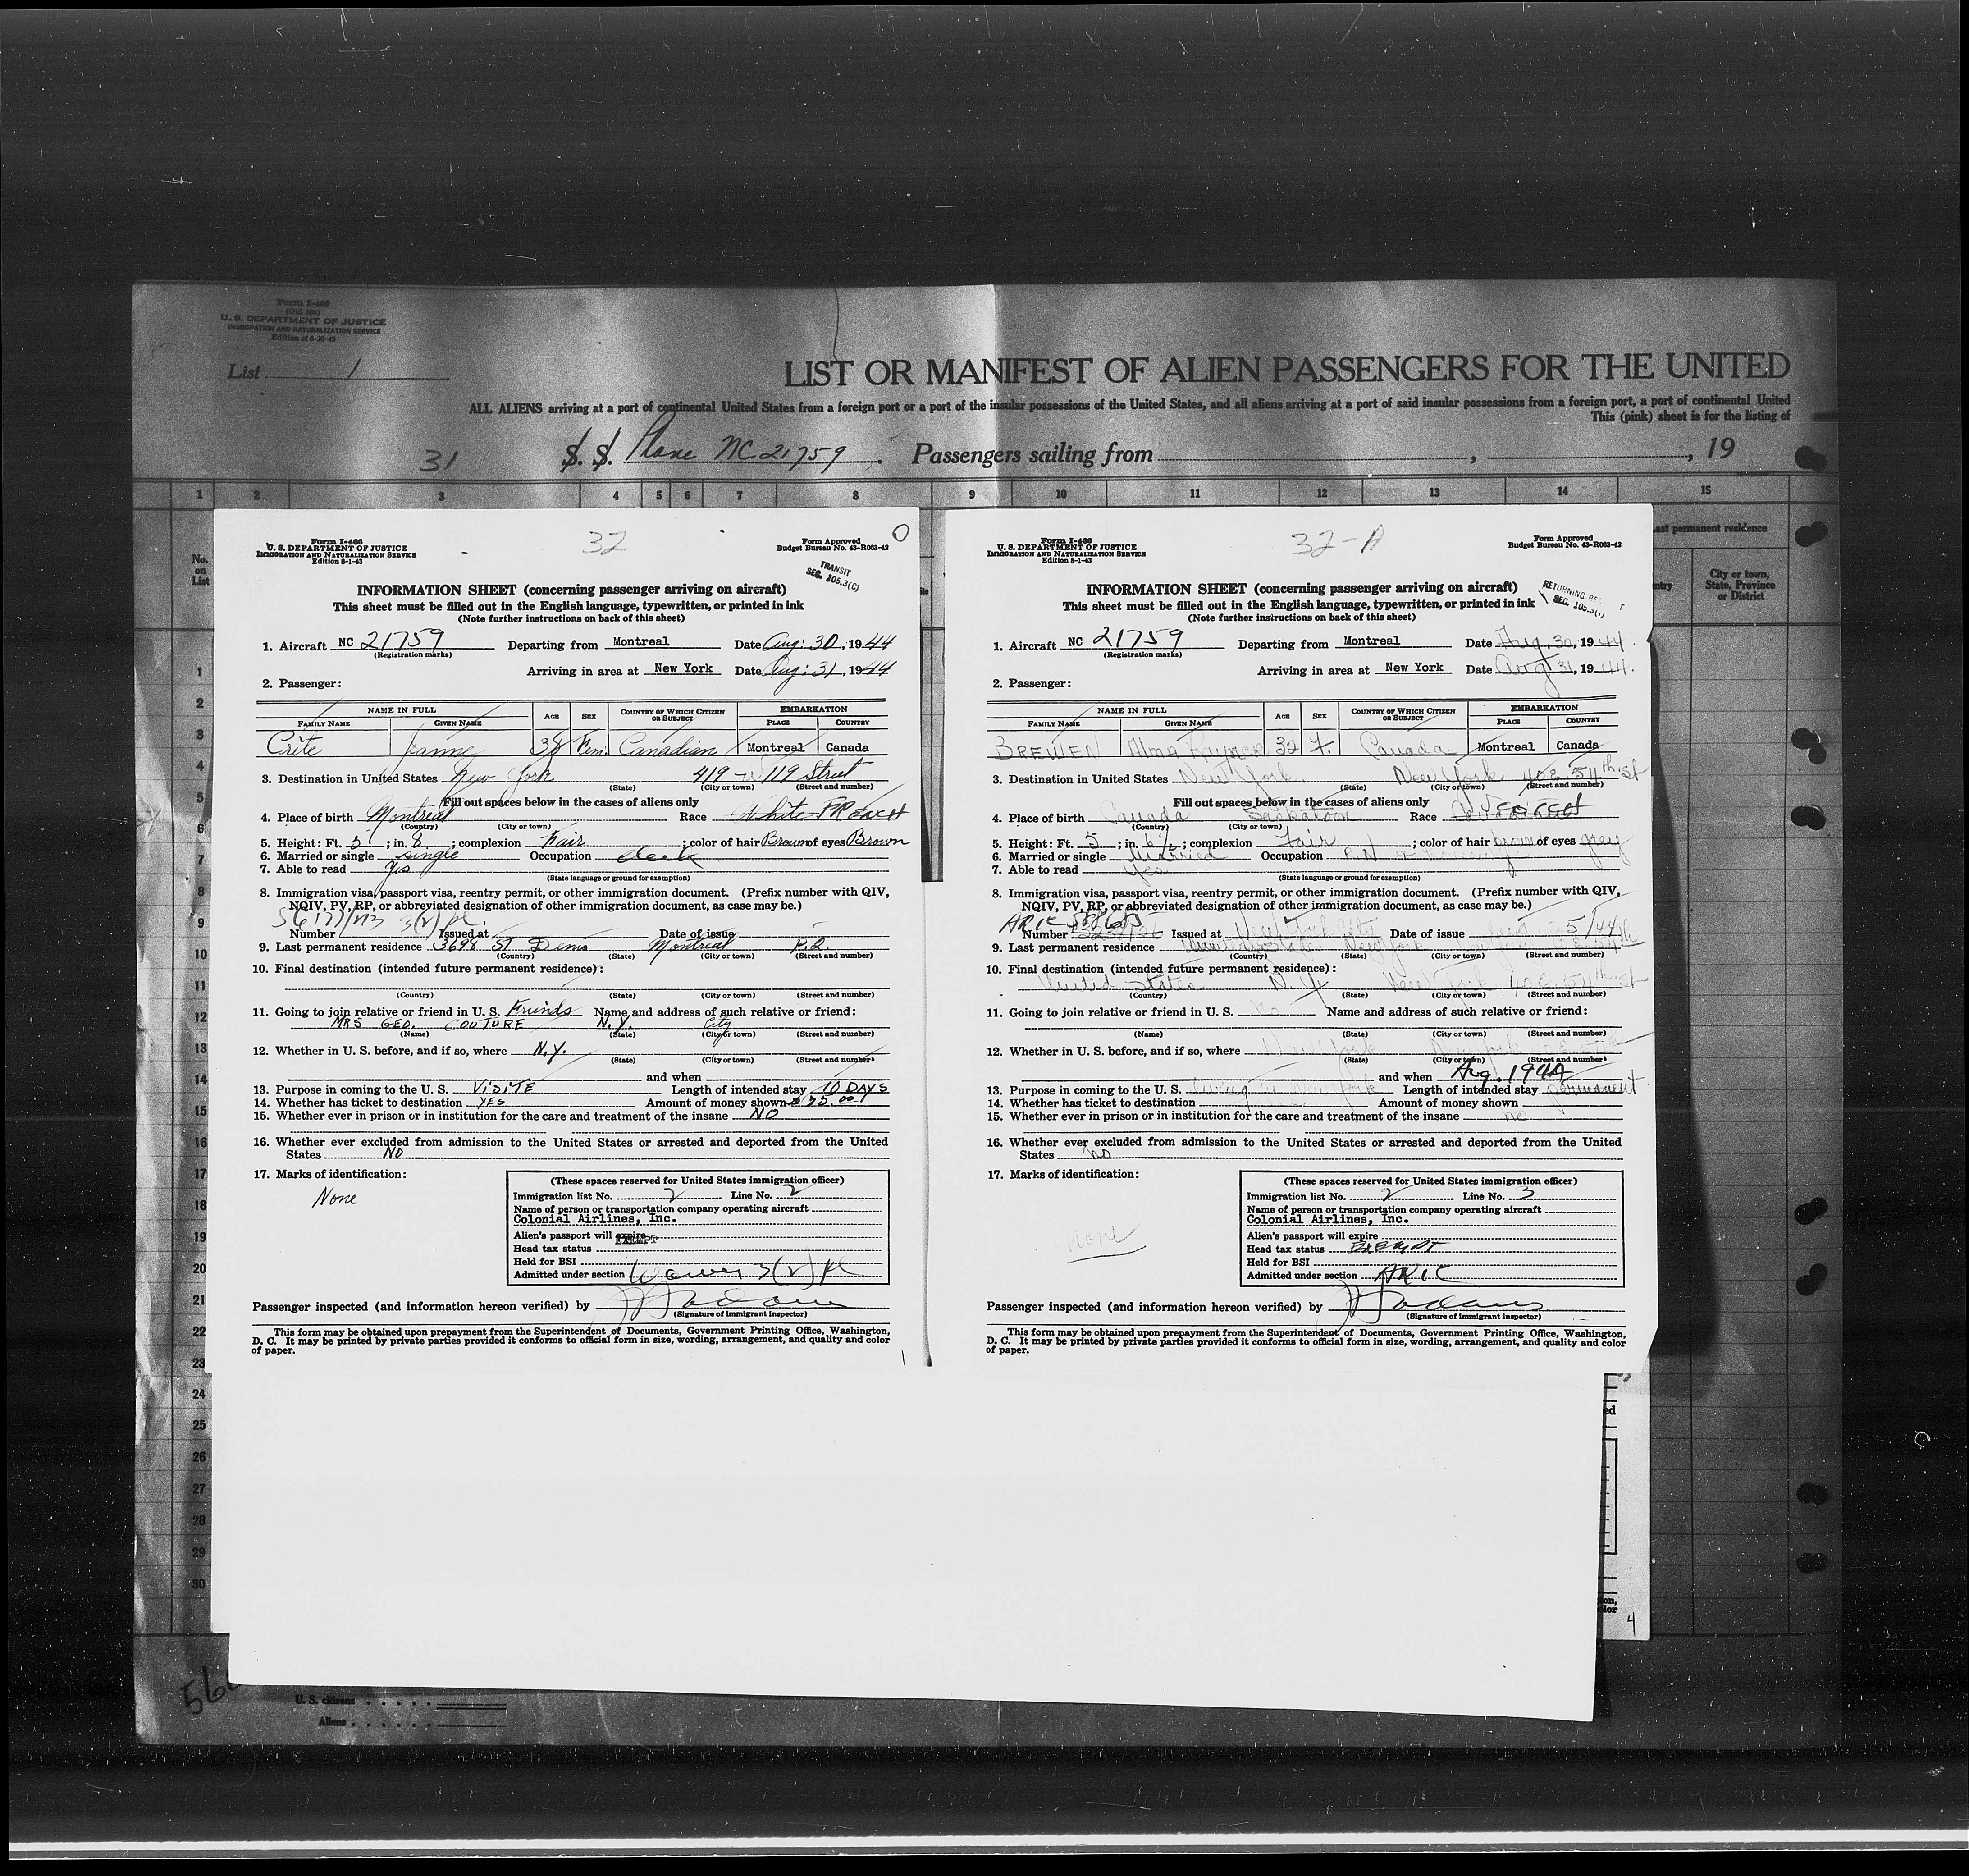 Form I-466
(Old 500)
U. S. DEPARTMENT OF JUSTICE
IMMIGRATION AND NATURALIZATION SERVICE
List 1
LIST OR MANIFEST OF ALIEN PASSENGERS FOR THE UNITED
ALL ALIENS arriving at a port of continental United States from a foreign port or a port of the insular possessions of the United States, and all aliens arriving at a port of said insular possessions from a foreign port, a port of continental United
This (pink) sheet is for the listing of
31 S. S. Plane NC 21759 . Passengers sailing from , , 19
1 2 3 4 5 6 7 8 9 10 11 12 13 14 15
No. on List
ast permanent residence
ntry
City or town, State, Province or District
1
2
3
4
5
6
7
8
9
10
11
12
13
14
15
16
17
18
19
20
21
22
23
24
25
26
27
28
29
30
Form I-466
U. S. DEPARTMENT OF JUSTICE
IMMIGRATION AND NATURALIZATION SERVICE
Edition 8-1-43
32
Form Approved
Budget Bureau No. 43-R063-42
TRANSIT
SEC. 105.3(C)
INFORMATION SHEET (concerning passenger arriving on aircraft)
This sheet must be filled out in the English language, typewritten, or printed in ink
(Note further instructions on back of this sheet)
1. Aircraft NC 21759 Departing from Montreal Date Aug. 30, 1944
(Registration marks)
Arriving in area at New York Date Aug. 31, 1944
2. Passenger:
NAME IN FULL AGE SEX COUNTRY OF WHICH CITIZEN OR SUBJECT EMBARKATION
FAMILY NAME GIVEN NAME PLACE COUNTRY
Crête Jeanne 38 Fem. Canadian Montreal Canada
3. Destination in United States New York 419 - W 119 Street
(State) (City or town) (Street and number)
Fill out spaces below in the cases of aliens only
4. Place of birth Montreal Race White-FRENCH
(Country) (City or town)
5. Height: Ft. 5 ; in. 8 ; complexion Fair ; color of hair Brown of eyes Brown
6. Married or single single Occupation clerk
7. Able to read Yes
(State language or ground for exemption)
8. Immigration visa, passport visa, reentry permit, or other immigration document. (Prefix number with QIV,
NQIV, PV, RP, or abbreviated designation of other immigration document, as case may be.)
Number Issued at Date of issue
9. Last permanent residence 3698 ST Denis Montreal P.Q.
(Country) (State) (City or town) (Street and number)
10. Final destination (intended future permanent residence):
(Country) (State) (City or town) (Street and number)
11. Going to join relative or friend in U. S. Friends Name and address of such relative or friend:
MRS GEO. COUTURE N.Y. City
(Name) (State) (City or town) (Street and number)
12. Whether in U. S. before, and if so, where N.Y.
(State) (City or town) (Street and number)
and when
13. Purpose in coming to the U. S. VISITE Length of intended stay 10 DAYS
14. Whether has ticket to destination YES Amount of money shown $75.00
15. Whether ever in prison or in institution for the care and treatment of the insane NO
16. Whether ever excluded from admission to the United States or arrested and deported from the United
States NO
17. Marks of identification:
None
(These spaces reserved for United States immigration officer)
Immigration list No. 2 Line No. 2
Name of person or transportation company operating aircraft
Colonial Airlines, Inc.
Alien's passport will expire
Head tax status EXEMPT
Held for BSI
Admitted under section
Passenger inspected (and information hereon verified) by
(Signature of immigrant inspector)
This form may be obtained upon prepayment from the Superintendent of Documents, Government Printing Office, Washington,
D. C. It may be printed by private parties provided it conforms to official form in size, wording, arrangement, and quality and color
of paper.
Form I-466
U. S. DEPARTMENT OF JUSTICE
IMMIGRATION AND NATURALIZATION SERVICE
Edition 8-1-43
32-A
Form Approved
Budget Bureau No. 43-R063-42
RETURNING
SEC. 105.3(1)
INFORMATION SHEET (concerning passenger arriving on aircraft)
This sheet must be filled out in the English language, typewritten, or printed in ink
(Note further instructions on back of this sheet)
1. Aircraft NC 21759 Departing from Montreal Date Aug. 30, 1944
(Registration marks)
Arriving in area at New York Date Aug 31, 1944.
2. Passenger:
NAME IN FULL AGE SEX COUNTRY OF WHICH CITIZEN OR SUBJECT EMBARKATION
FAMILY NAME GIVEN NAME PLACE COUNTRY
BREWEN Alma Raymer 32 F. Canada Montreal Canada
3. Destination in United States New York New York 40 E. 54th St
(State) (City or town) (Street and number)
Fill out spaces below in the cases of aliens only
4. Place of birth Canada Saskatoon Race
(Country) (City or town)
5. Height: Ft. 5 ; in. 6½ ; complexion Fair ; color of hair brown of eyes grey
6. Married or single Married Occupation R.N
7. Able to read Yes
(State language or ground for exemption)
8. Immigration visa, passport visa, reentry permit, or other immigration document. (Prefix number with QIV,
NQIV, PV, RP, or abbreviated designation of other immigration document, as case may be.)
ARIC
Number Issued at New York City Date of issue 5/44
9. Last permanent residence United States New York
(Country) (State) (City or town) (Street and number)
10. Final destination (intended future permanent residence):
United States N.Y. New York 40 E. 54th St
(Country) (State) (City or town) (Street and number)
11. Going to join relative or friend in U. S. Name and address of such relative or friend:
(Name) (State) (City or town) (Street and number)
12. Whether in U. S. before, and if so, where New York
(State) (City or town) (Street and number)
and when Aug. 1944
13. Purpose in coming to the U. S. Length of intended stay permanent
14. Whether has ticket to destination Amount of money shown
15. Whether ever in prison or in institution for the care and treatment of the insane no
16. Whether ever excluded from admission to the United States or arrested and deported from the United
States no
17. Marks of identification:
none
(These spaces reserved for United States immigration officer)
Immigration list No. 2 Line No. 3
Name of person or transportation company operating aircraft
Colonial Airlines, Inc.
Alien's passport will expire
Head tax status EXEMPT
Held for BSI
Admitted under section ARIC
Passenger inspected (and information hereon verified) by
(Signature of immigrant inspector)
This form may be obtained upon prepayment from the Superintendent of Documents, Government Printing Office, Washington,
D. C. It may be printed by private parties provided it conforms to official form in size, wording, arrangement, and quality and color
of paper.
ed
on,
lor
4
56
U. S. citizens
Aliens